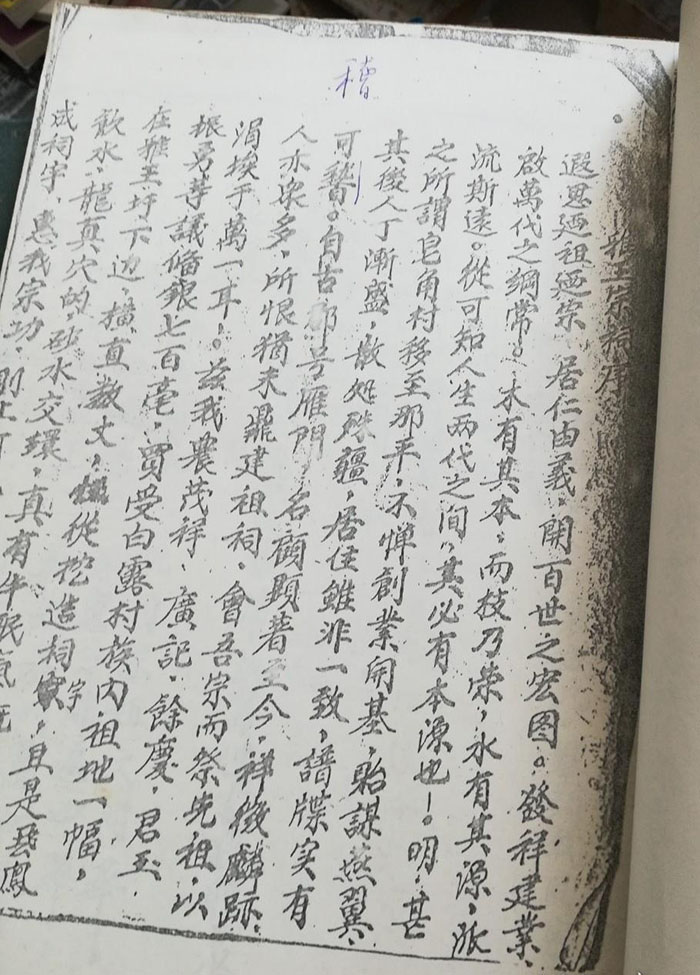 稽
雅王宗祠序
遐思廼祖廼宗、居仁由義，開百世之宏图。發祥建業、
啟萬代之綱常。木有其本，而枝乃荣，水有其源，派
流斯遠。从可知人生两代之间，其必有本源也！。明，其
之所謂皂角村移至那平，不惮創業开基，貽謀燕翼、
其後人丁漸盛，散処殊疆，居住雖非一致，譜牒实有
可暬。自古郡号雁門，名顧顕著至今，祥徵麟跡、
人亦衆多，所恨猶未鼎建祖祠，會吾宗而祭先祖，以
涓埃于萬一耳！。兹我農茂祥、廣記、餘慶、君玉、
振勇等議俻銀七百毫，買受白露村族内祖地一幅，
在雅王圩下边，横直数丈，從挖造祠宇，且是飛鳳
飲水，龍真穴的，砂水交環，真有牛眠氣
成祠宇，惠我宗功，則